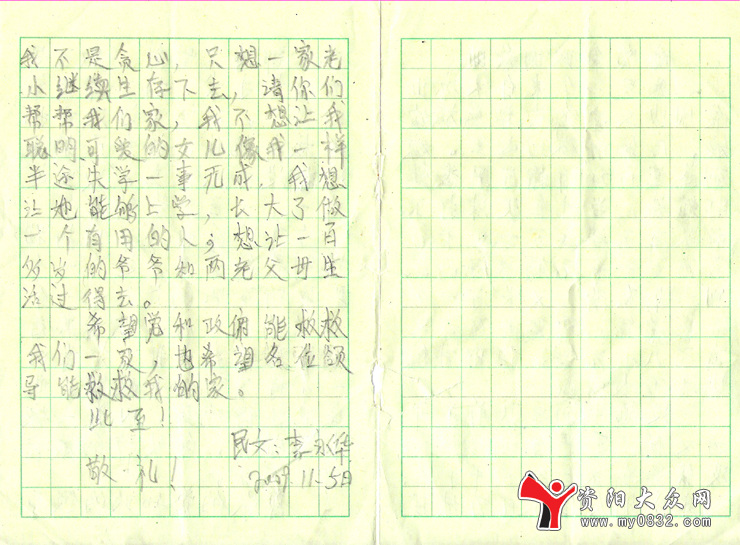 我不是贪心，只想一家老
小继续生存下去，请你们
帮帮我们家，我不想让我
聪明、可爱的女儿像我一样
半途失学一事无成，我想
让她能够上学，长大了做
一个有用的人；想让一百
多岁的爷爷和两老父母生
活过得去。
希望党和政府能救救
我们一家，也希望各位领
导能救救我的家。
此至！
民女：李永华
敬礼！
2009.11-5日
资阳大众网
www.my0832.com